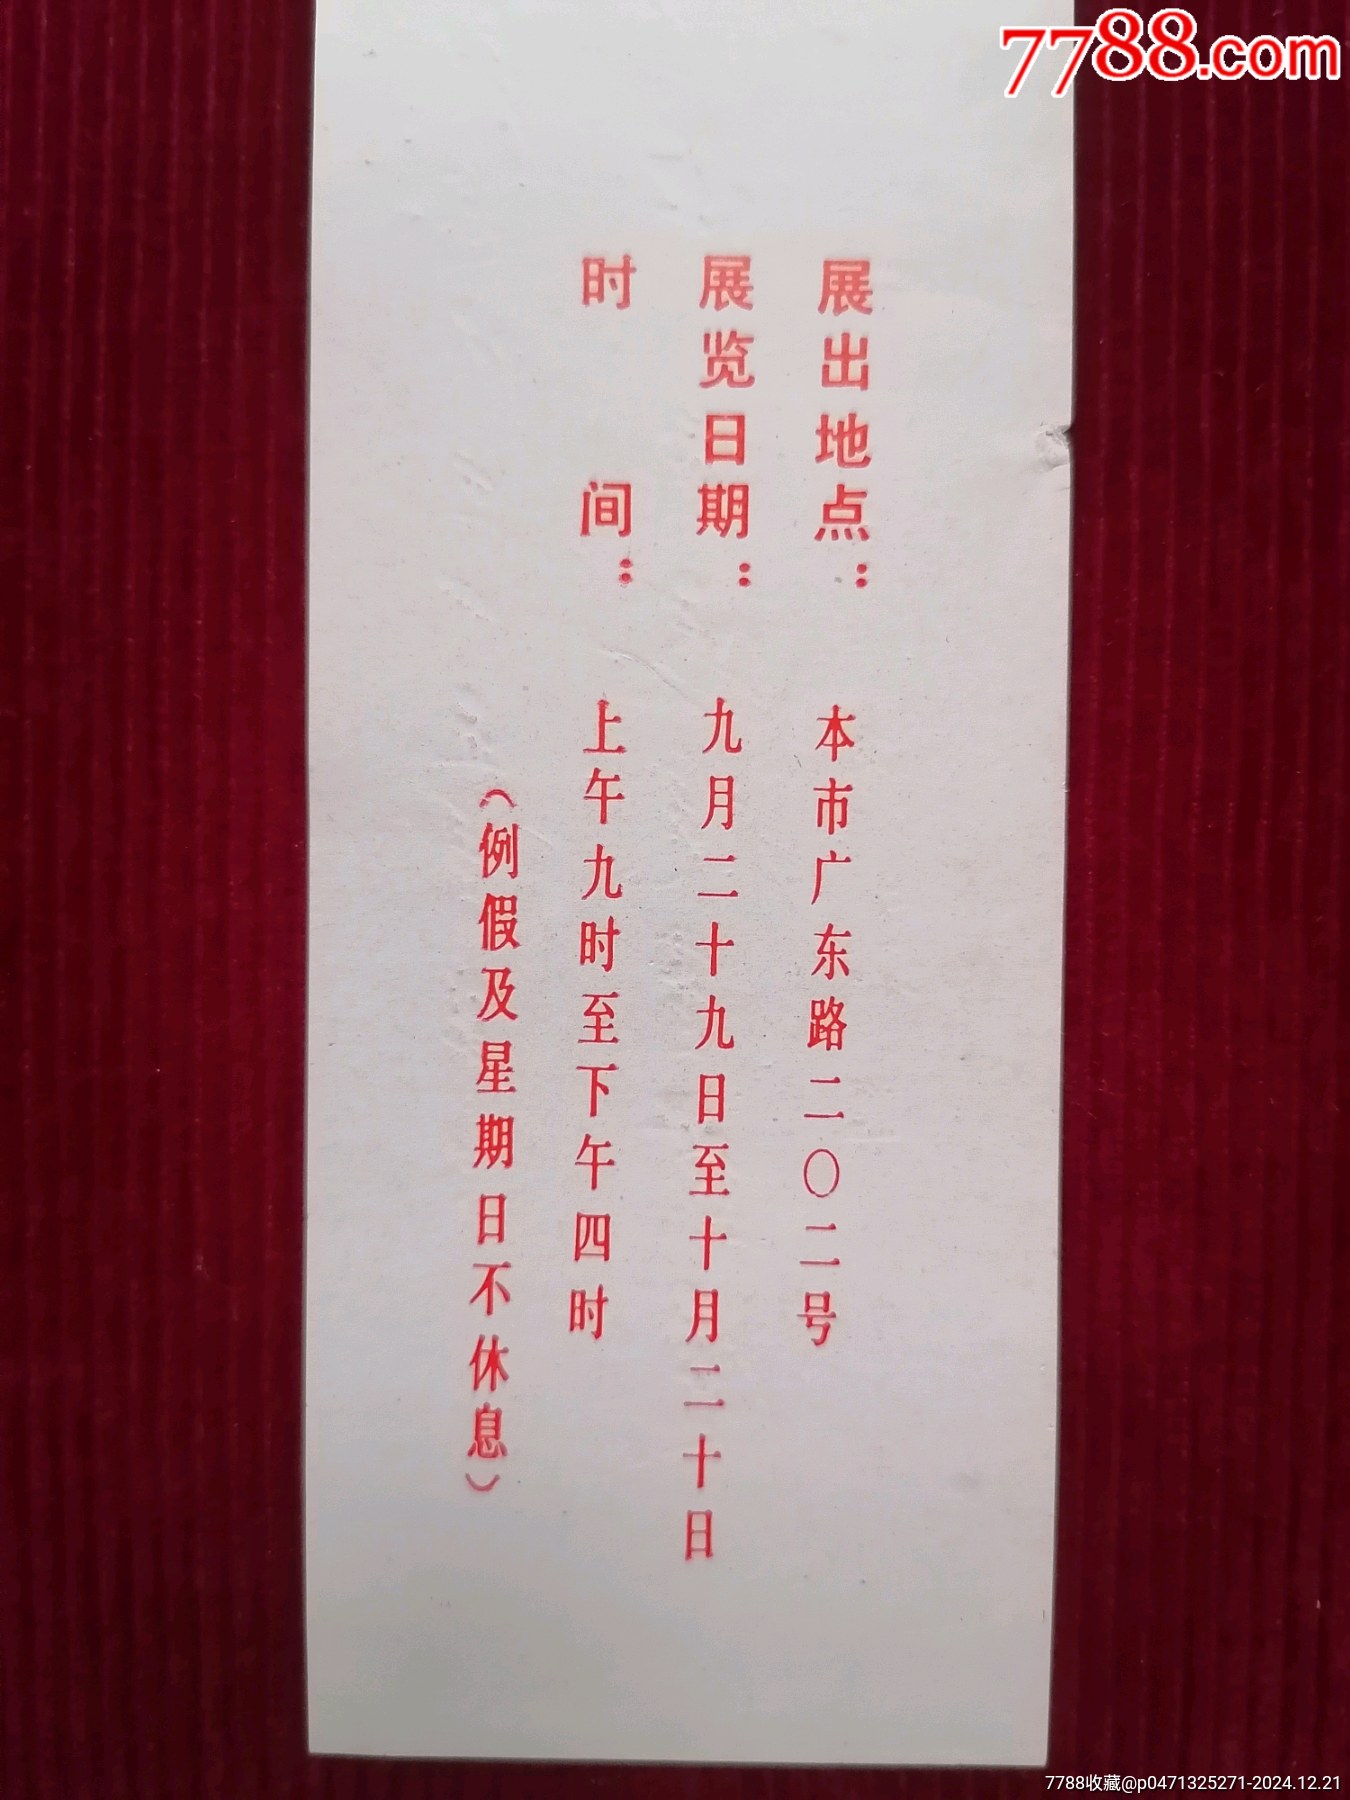 7788.com
展出地点：本市广东路二〇二号
展览日期：九月二十九日至十月二十日
时间：上午九时至下午四时
（例假及星期日不休息）
7788收藏@p0471325271-2024.12.21